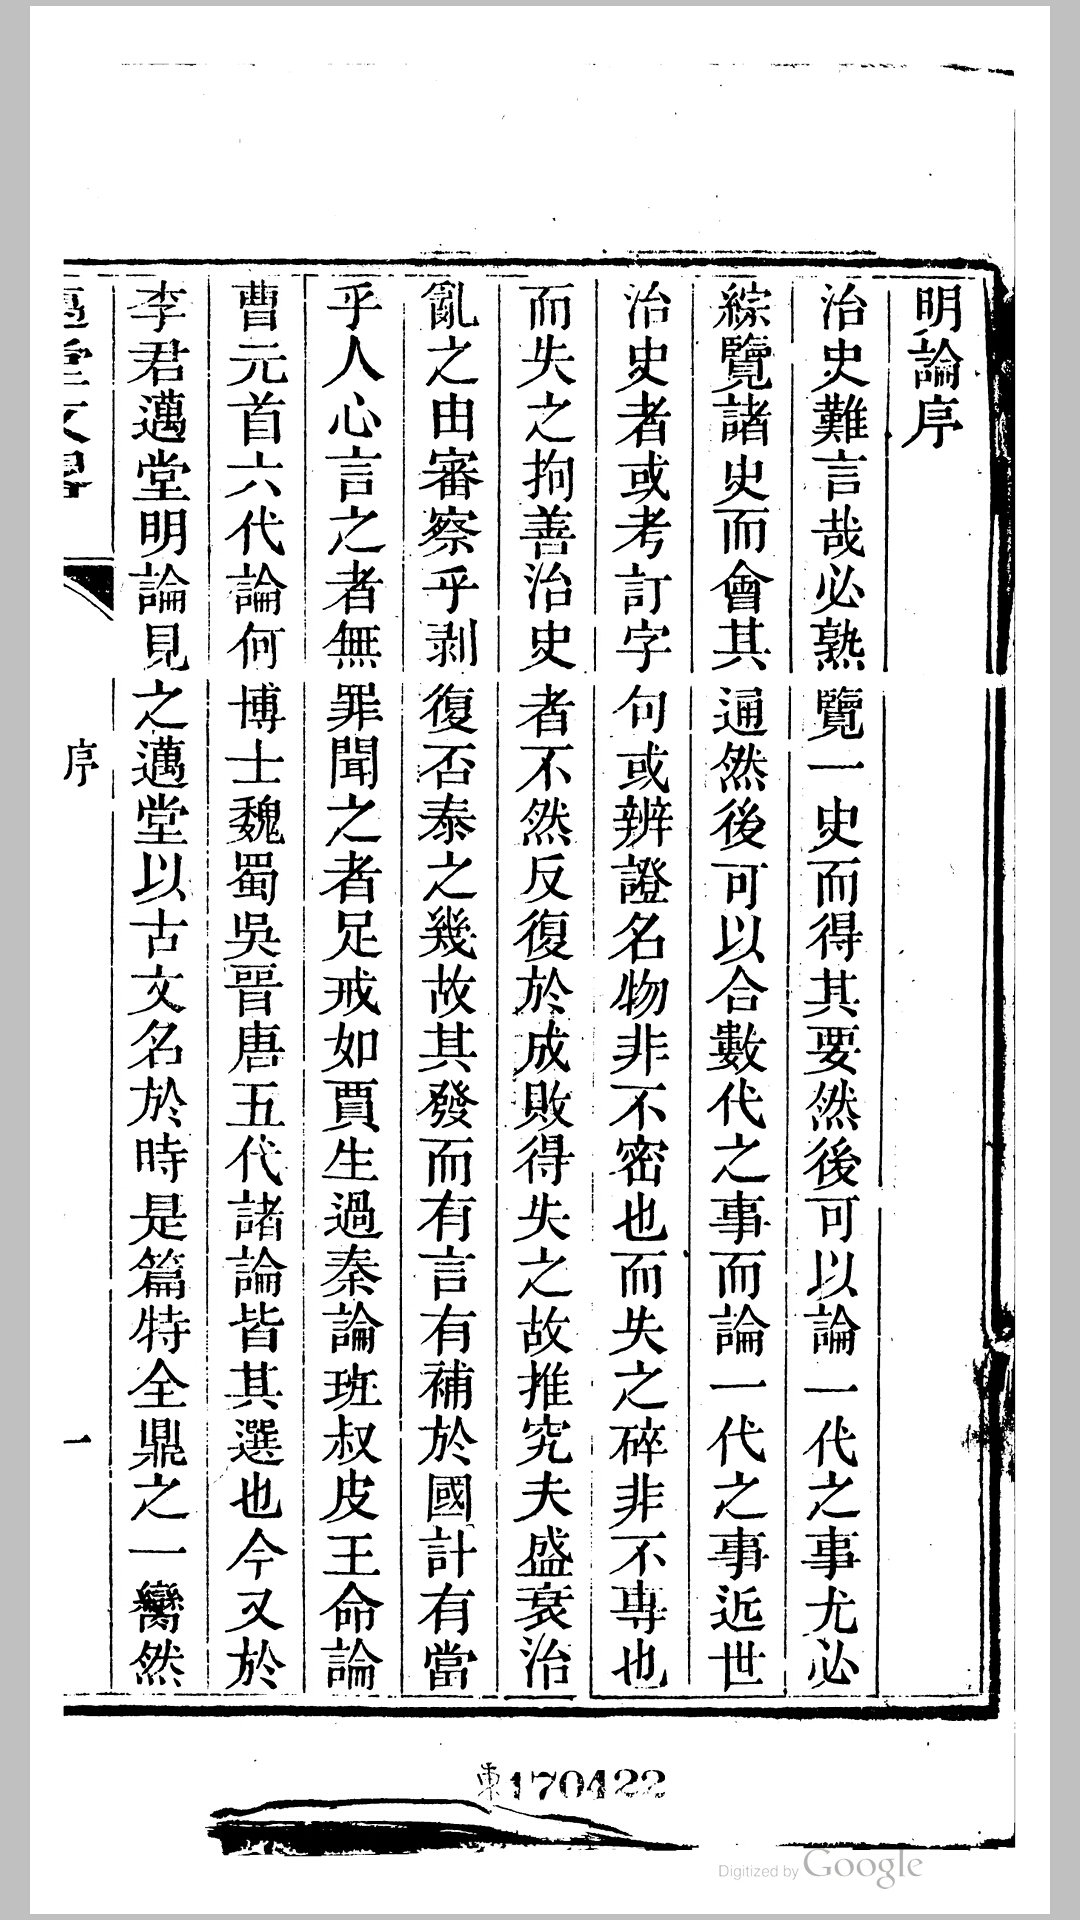 明論序
治史難言哉必熟覽一史而得其要然後可以論一代之事尤必
綜覽諸史而會其通然後可以合數代之事而論一代之事近世
治史者或考訂字句或辨證名物非不密也而失之碎非不專也
而失之拘善治史者不然反復於成敗得失之故推究夫盛衰治
亂之由審察乎剥復否泰之幾故其發而有言有補於國計有當
乎人心言之者無罪聞之者足戒如賈生過秦論班叔皮王命論
曹元首六代論何博士魏蜀吳晉唐五代諸論皆其選也今又於
李君邁堂明論見之邁堂以古文名於時是篇特全鼎之一臠然
邁堂文畧
序
一
東170422
Digitized by Google